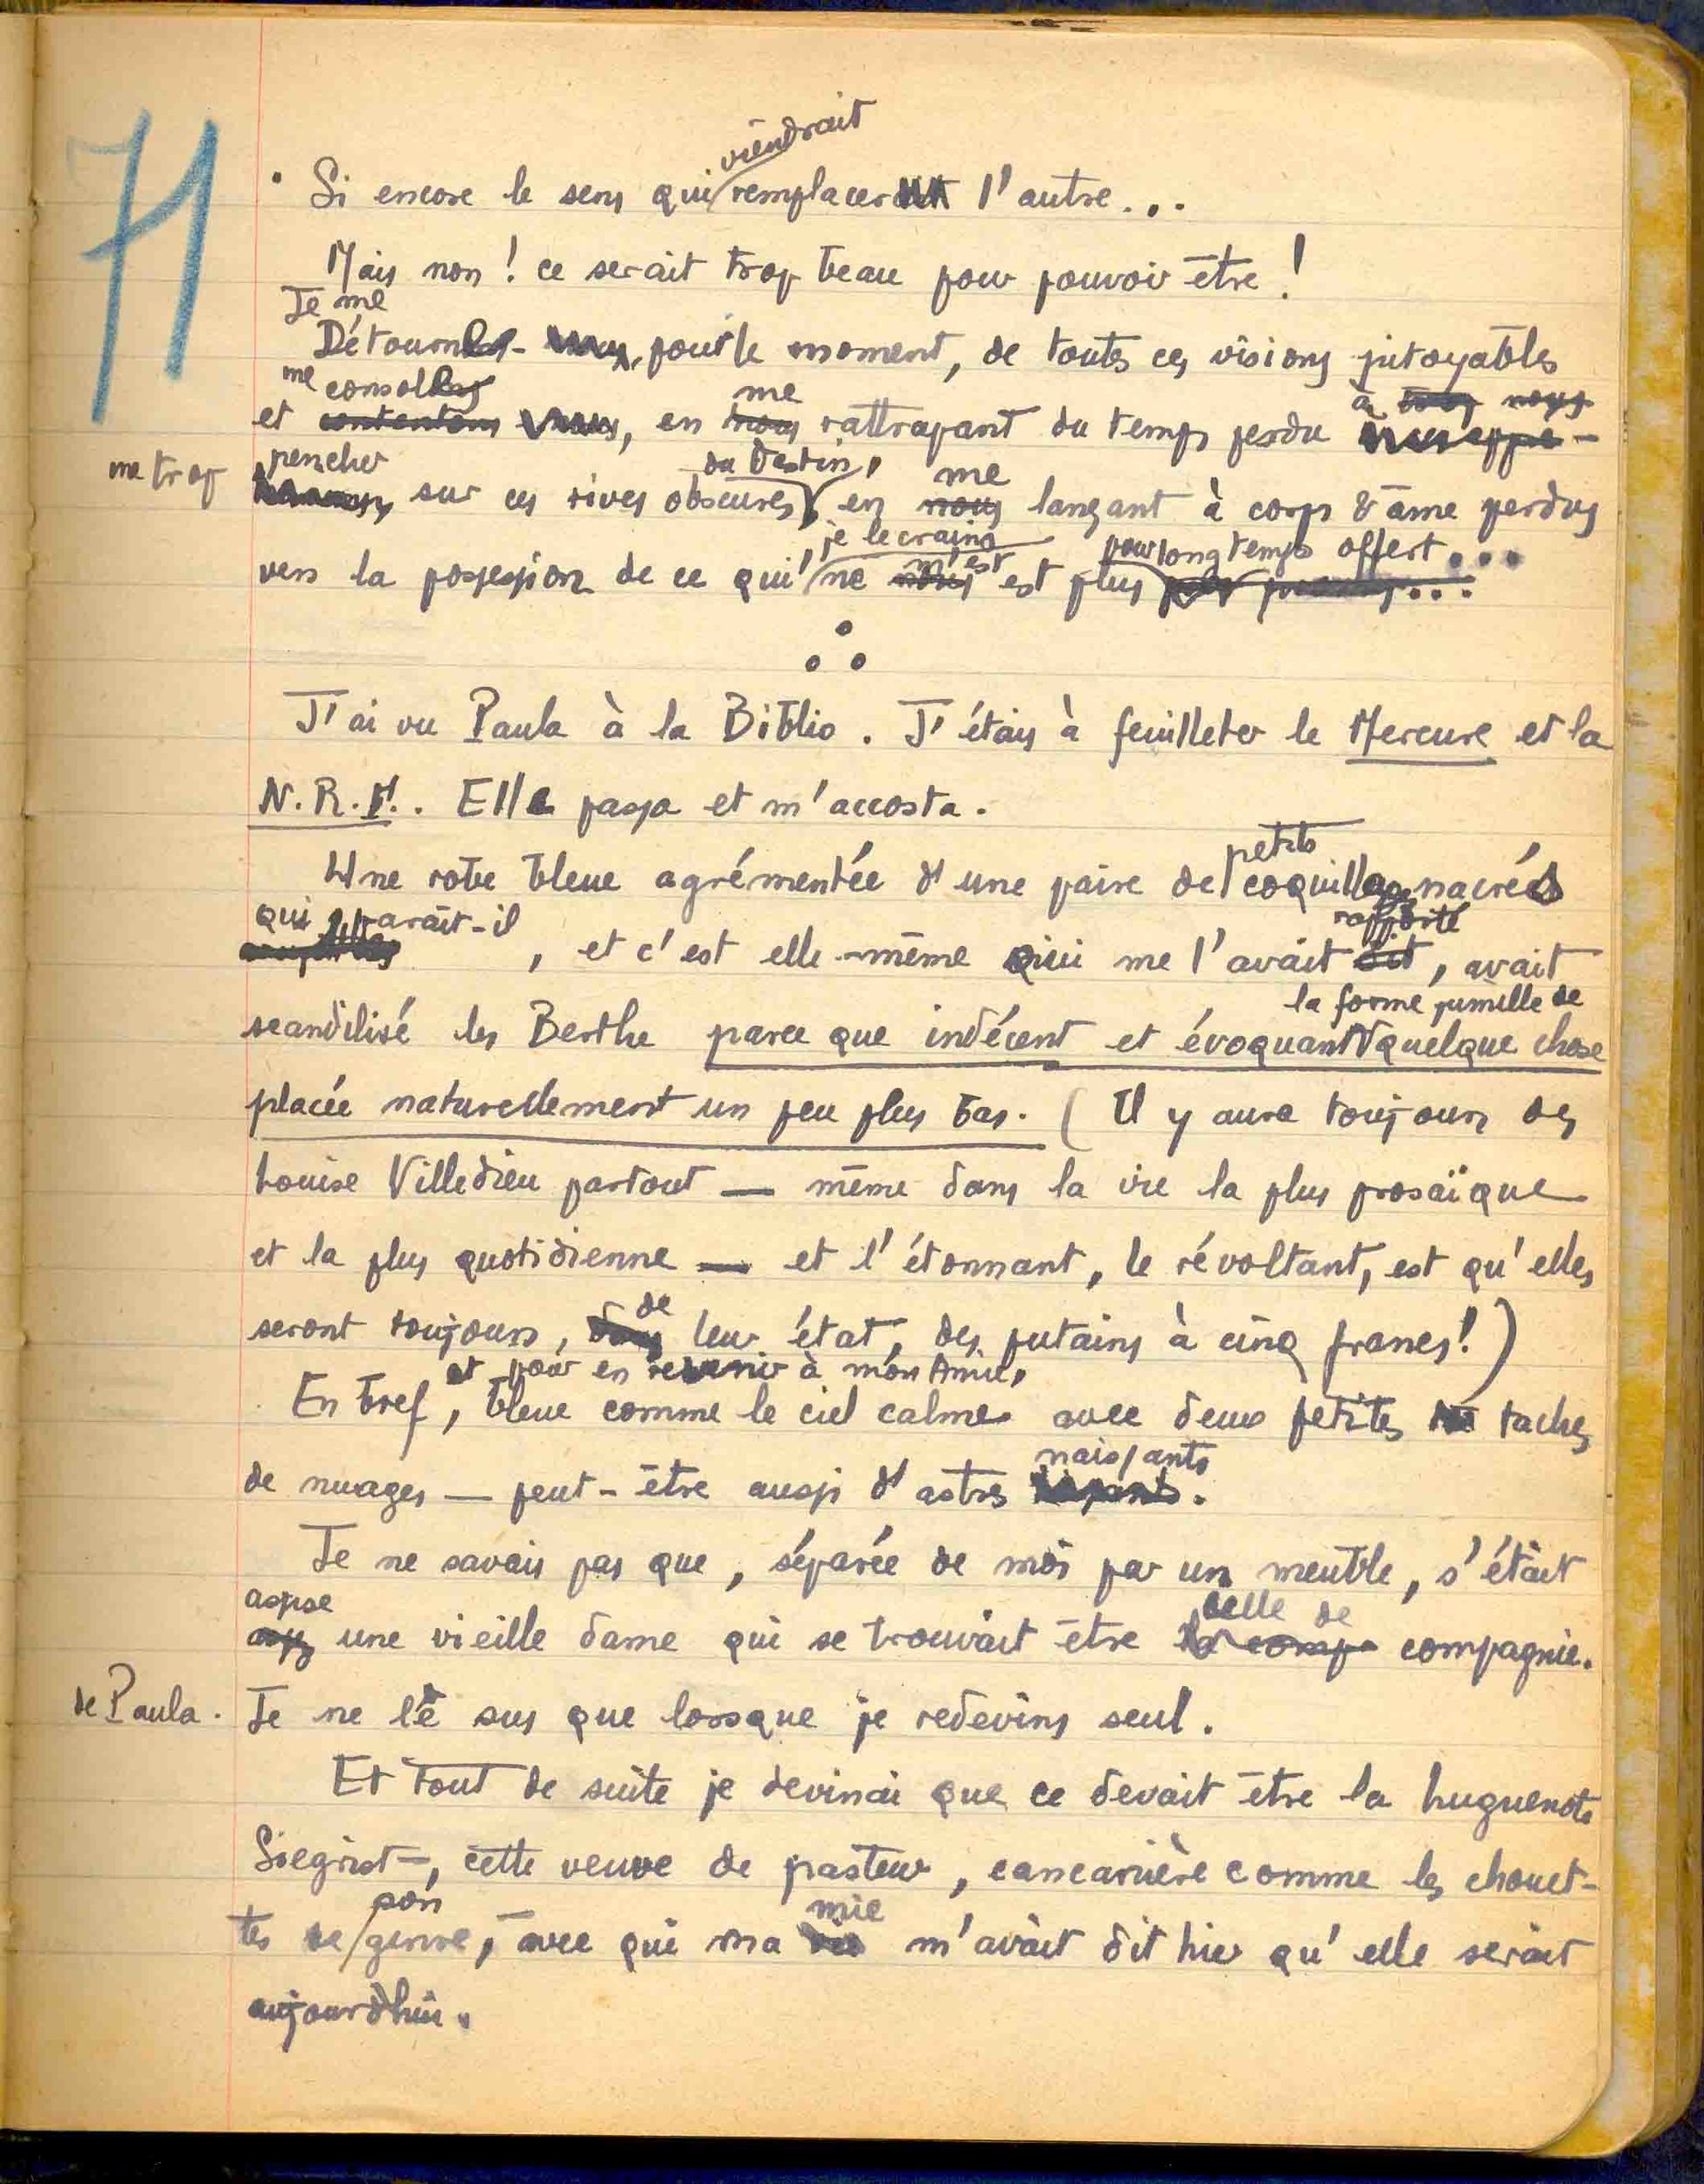 71
viendrait
• Si encore le sens qui remplacer l'autre...
Mais non ! ce serait trop beau pour pouvoir être !
Je me
Détourne pour le moment, de toutes ces visions pitoyables
me console
me
à nous
et contentons nous, en nous rattrapant du temps perdu
me trop pencher
du Destin,
me
sur ces rives obscures, en nous lançant à corps & âme perdus
je le crains
m'est
pour longtemps offert...
vers la possession de ce qui ne nous est plus
J'ai vu Paula à la Biblio. J'étais à feuilleter le Mercure et la
N.R.F.. Elle passa et m'accosta.
petits
Une robe bleue agrémentée d'une paire de coquillages nacrés
qui paraît-il
rapporté
, et c'est elle-même qui me l'avait dit, avait
la forme jumelle de
scandalisé les Berthe parce que indécent et évoquant quelque chose
placée naturellement un peu plus bas. ( Il y aura toujours des
Louise Villedieu partout — même dans la vie la plus prosaïque
et la plus quotidienne — et l'étonnant, le révoltant, est qu'elles
de
seront toujours, dans leur état, des putains à cinq francs! )
et pour en revenir à mon Amie,
En bref, bleue comme le ciel calme avec deux petites taches
naissants
de nuages — peut-être aussi d'astres .
Je ne savais pas que, séparée de moi par un meuble, s'était
assise
celle de
une vieille dame qui se trouvait être la comp compagnie.
de Paula. Je ne le sus que lorsque je redevins seul.
Et tout de suite je devinai que ce devait être la huguenote
Siegrist —, cette veuve de pasteur, cancanière comme les chouet-
son
mie
tes de genre, — avec qui ma m'avait dit hier qu'elle serait
aujourd'hui.